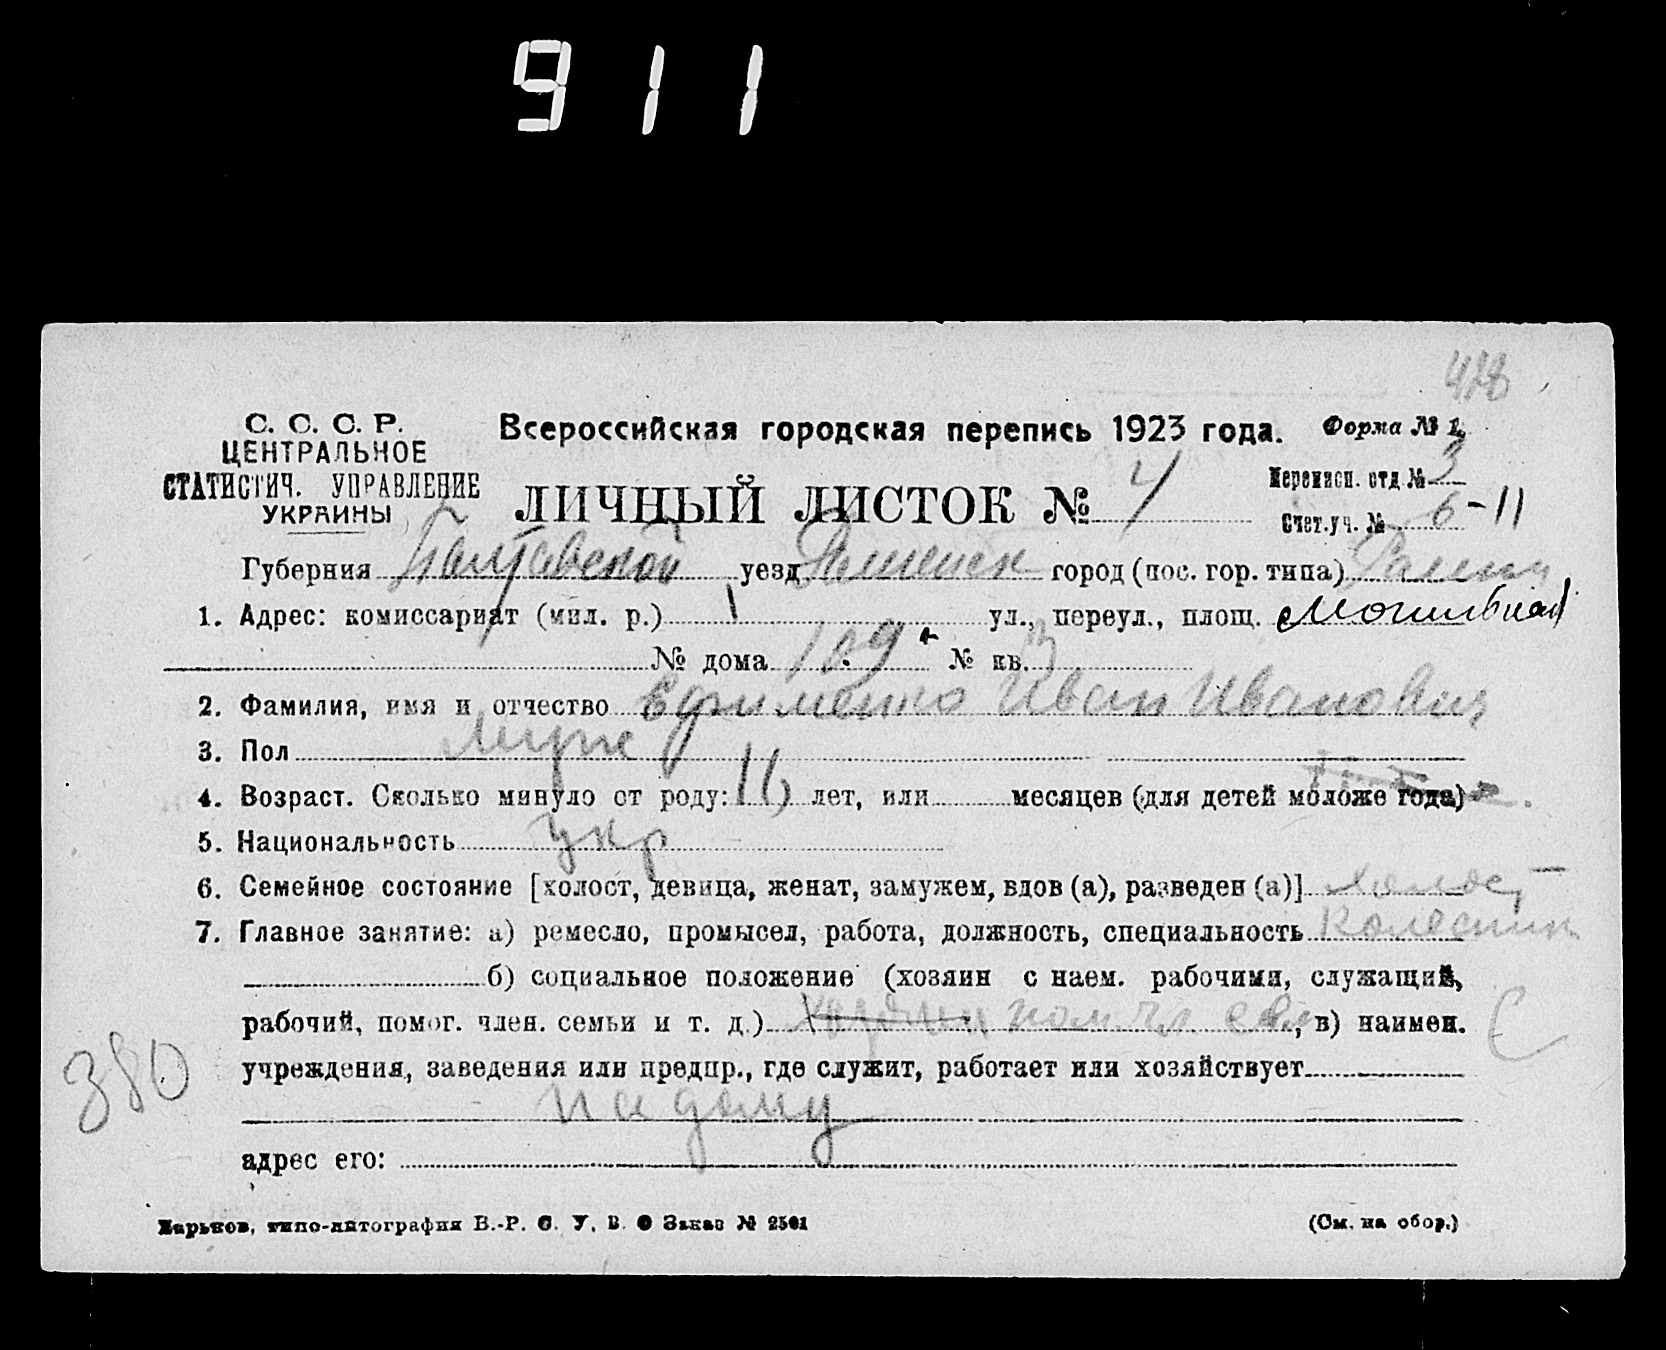 911
478
С. С. С. Р.
ЦЕНТРАЛЬНОЕ
СТАТИСТИЧ. УПРАВЛЕНИЕ
УКРАИНЫ
Всероссийская городская перепись 1923 года.
Форма № 1.
ЛИЧНЫЙ ЛИСТОК № 4
Переписн. отд № 3
Счет.уч. № 6-11
Губерния Полтавской уезд Роменск город (пос. гор. типа) Ромны
1. Адрес: комиссариат (мил. р.) 1 ул., переул., площ.
№ дома 109 № кв.
2. Фамилия, имя и отчество Ефименко Иван Иванович
3. Пол муж
4. Возраст. Сколько минуло от роду: 16 лет, или месяцев (для детей моложе года)
5. Национальность укр
6. Семейное состояние [холост, девица, женат, замужем, вдов (а), разведен (а)] холост
7. Главное занятие: а) ремесло, промысел, работа, должность, специальность Колесник
б) социальное положение (хозяин с наем. рабочими, служащий,
рабочий, помог. член. семьи и т. д.) хозяин пом чл сем, в) наимен.
учреждения, заведения или предпр., где служит, работает или хозяйствует
на дому
адрес его:
380
Харьков, типо-литография В.-Р. С. У. В. О Заказ № 2501
(См. на обор.)